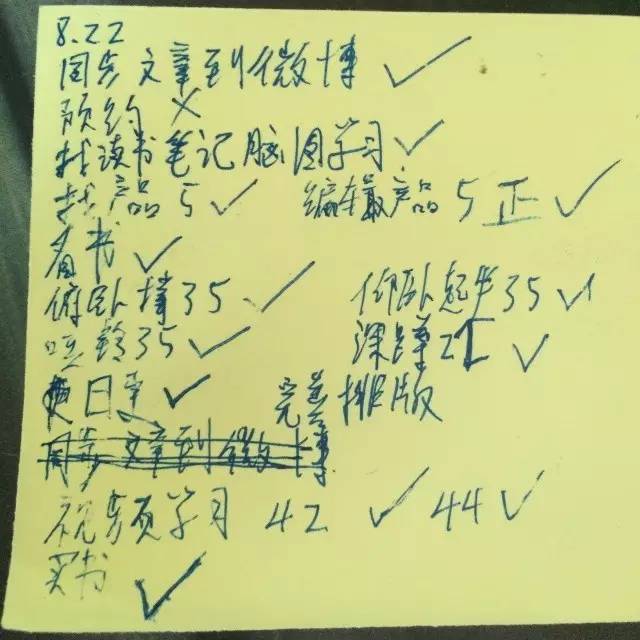 8.22
同步文章到微博 ✓
预约 ×
找读书笔记脑图学习 ✓
找产品 5 ✓ 编辑产品 5 正 ✓
看书 ✓
俯卧撑 35 ✓ 仰卧起坐 35 ✓
哑铃 35 ✓ 深蹲 ✓
日更 ✓ 完善排版
同步文章到微博
视频学习 42 ✓ 44 ✓
买书 ✓